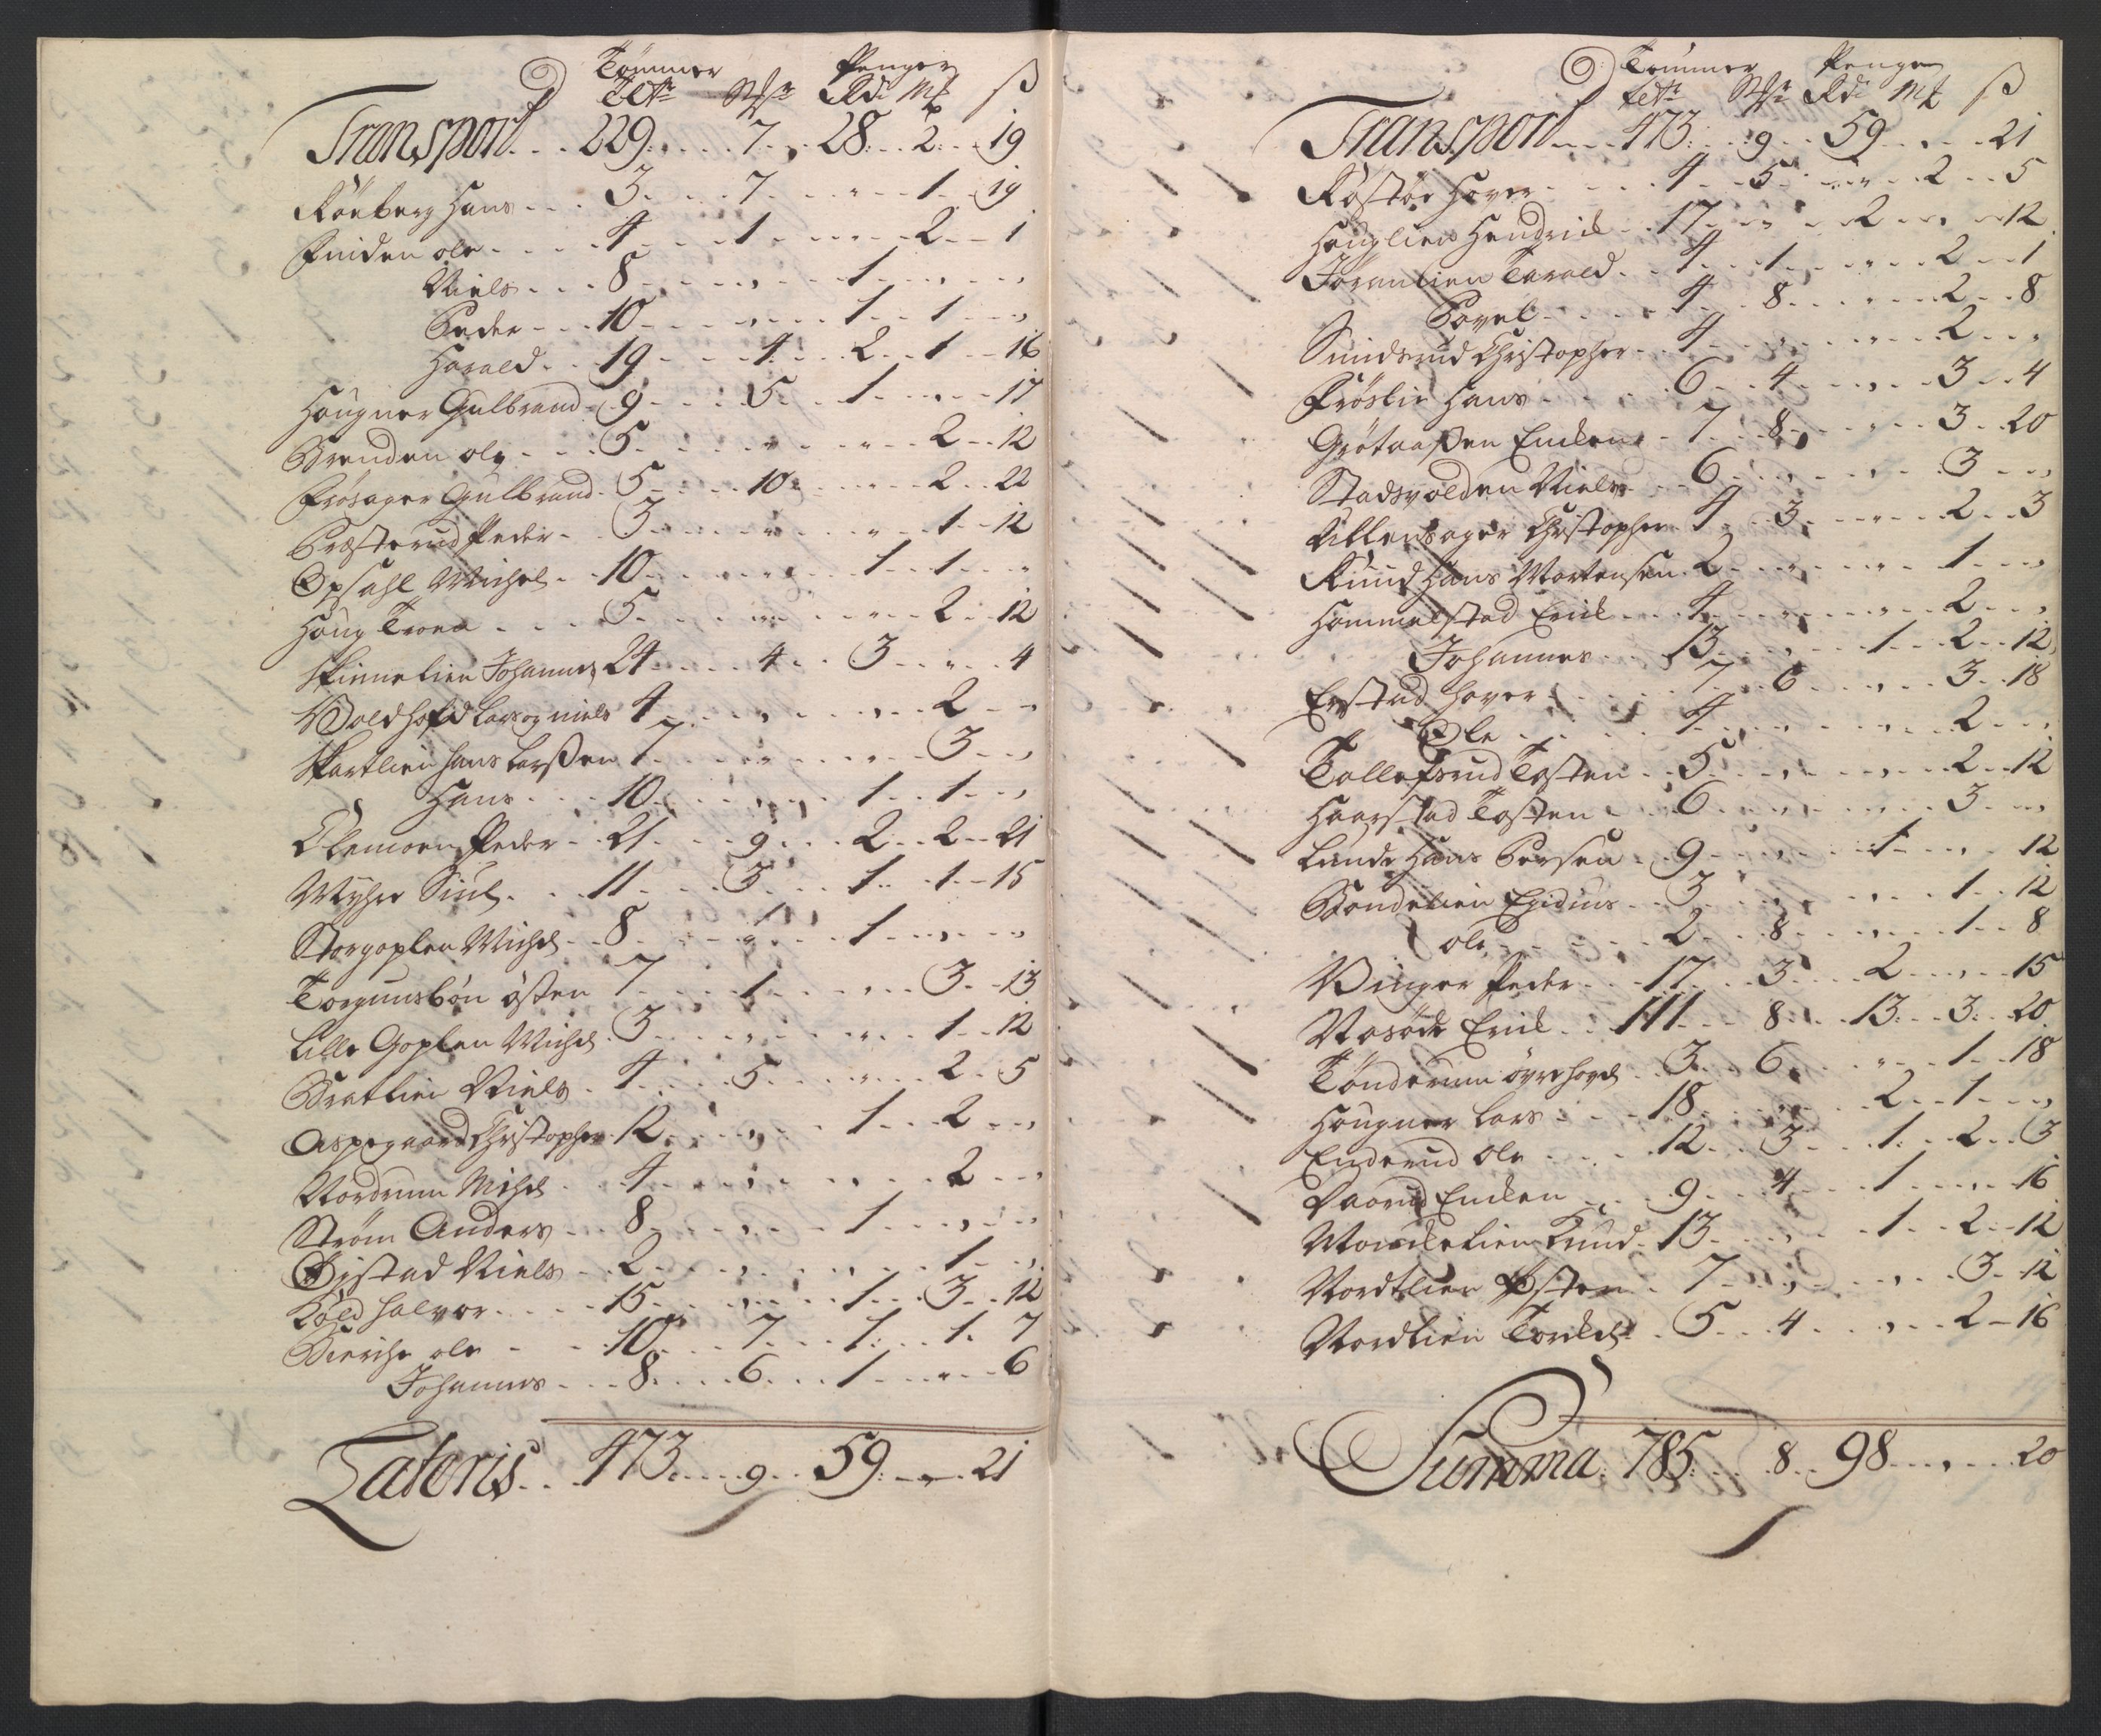 Tømmer Penger
Tltr Stk Rdr Mk ß
Transport... 229.... 7.. 28.. 2.. 19
Røneberg Hans... 3.... 7... " .. 1.. 19
Finden ole.... 4.... 1.... " .. 2.. 1
Niels... 8.... " ... 1... " .. "
Peder... 10.... " ... 1.. 1.. "
Harald.. 19.... 4... 2.. 1.. 16
Hougner Gulbrand.. 9.... 5... 1.. " .. 17
Brenden ole... 5.... " .... " .. 2.. 12
Frøsager Gulbrand. 5.... 10.... " .. 2.. 22
Præsterud Peder.. 3.... " .... " .. 1.. 12
Opsahl Michel.. 10.... " ... 1.. 1.. "
Houg Trond.... 5.... " .... " .. 2.. 12
Skinnelien Johannes 24.... 4... 3.. " .. 4
Voldhofd Lars og niels 4.... " .... " .. 2.. "
Skartlien hans Larßen 7.... " .... " .. 3.. "
Hans... 10.... " ... 1.. 1.. "
Klemoen Peder.. 21.... 9... 2.. 2.. 21
Myhre Siul... 11.... 3... 1.. 1.. 15
Storgoplen Michel.. 8.... " ... 1.. " .. "
Torgunsbøn østen 7.... 1.... " .. 3.. 13
Lille Goplen Michel. 3.... " .... " .. 1.. 12
Bratlien Niels. 4.... 5.... " .. 2.. 5
Aspegaard Christopher. 12.... " ... 1.. 2.. "
Nordrum Michel.. 4.... " .... " .. 2.. "
Strøm Anders.. 8.... " ... 1.. " .. "
Øistad Niels.. 2.... " .... " .. 1.. "
Kold halvor.... 15.... " ... 1.. 3.. 12
Bierche ole.. 10.... 7... 1.. 1.. 7
Johannes... 8.... 6... 1.. " .. 6
Lateris... 473.... 9.. 59.. " .. 21
Tømmer Penge
Tltr Stk Rdr Mk ß
Transport... 473.. 9.. 59.. " .. 21
Røstøe Hover.... 4.. 5.. " .. 2.. 5
Houglien Hendrick.. 17.. " .. 2.. " .. 12
Jøranlien Tarald.. 4.. 1.. " .. 2.. 1
Povel.... 4.. 8.. " .. 2.. 8
Sundsrud Christopher.. 4.. " .. " .. 2.. "
Frøslie Hans.... 6.. 4.. " .. 3.. 4
Grøtaaßen Encken.. 7.. 8.. " .. 3.. 20
Stadsvolden Niels.. 6.. " .. " .. 3.. "
Killensager Christopher. 4.. 3.. " .. 2.. 3
Ruud Hans Mortensen. 2.. " .. " .. 1.. "
Hommelstad Erick.... 4.. " .. " .. 2.. "
Johannes... 13.. " .. 1.. 2.. 12
Erstad hover.... 7.. 6.. " .. 3.. 18
Ole.... 4.. " .. " .. 2.. "
Tollefsrud Tosten.. 5.. " .. " .. 2.. 12
Haarstad Tosten.. 6.. " .. " .. 3.. "
Lunde Hans Persen.. 9.. " .. 1.. " .. 12
Bondelien Egidius.. 3.. " .. " .. 1.. 12
ole.... 2.. 8.. " .. 1.. 8
Vinger Peder... 17.. 3.. 2.. " .. 15
Nosøde Erick... 111.. 8.. 13.. 3.. 20
Tønderum øvre hovel.. 3.. 6.. " .. 1.. 18
Hougner Lars.... 18.. " .. 2.. 1.. "
Enderud Ole.... 12.. 3.. 1.. 2.. 3
Daarud Encken... 9.. 4.. 1.. " .. 16
Knud. 13.. " .. 1.. 2.. 12
Nordtlien Østen.. 7.. " .. " .. 3.. 12
Nordlien Torckel.. 5.. 4.. " .. 2.. 16
Summa. 785.. 8.. 98.. " .. 20